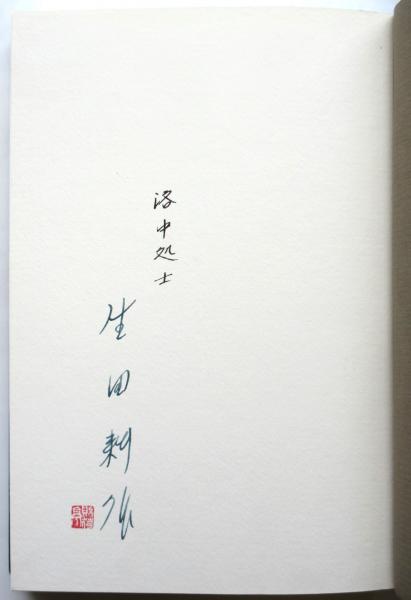 洛中処士
生田耕作